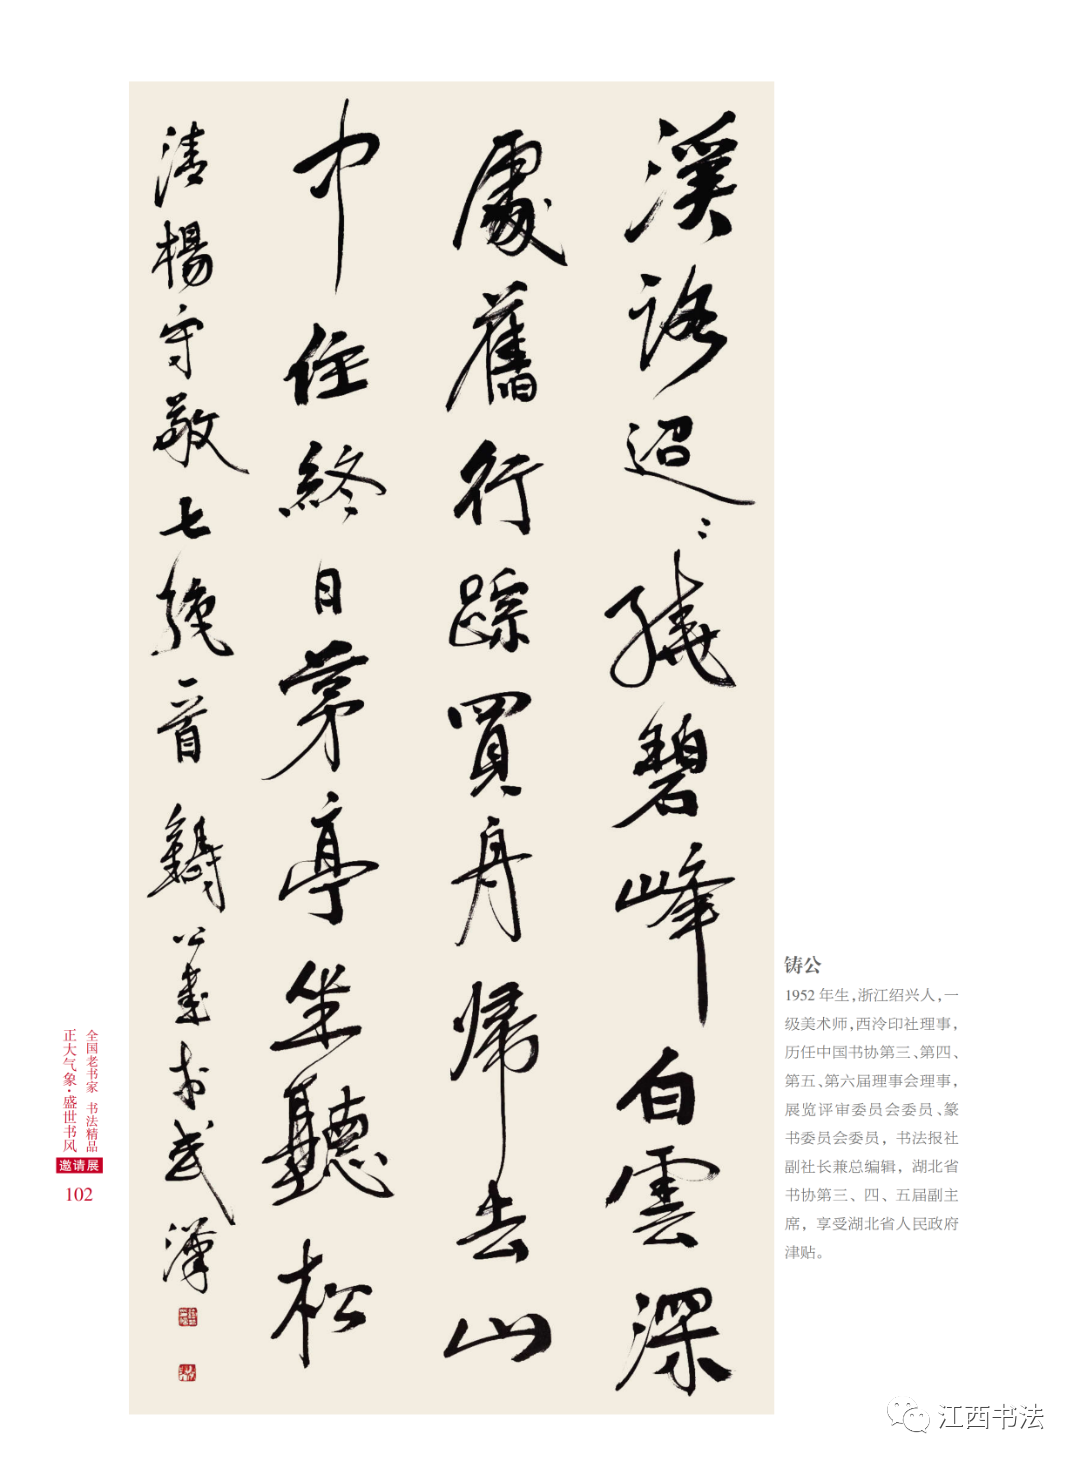 溪路迢〻繞碧峰白雲深
處舊行踪買舟歸去山
中住終日茅亭坐聽松
清楊守敬七絕一首鑄公書於武漢
铸公
1952 年生，浙江绍兴人，一
级美术师，西泠印社理事，
历任中国书协第三、第四、
第五、第六届理事会理事，
展览评审委员会委员、篆
书委员会委员，书法报社
副社长兼总编辑，湖北省
书协第三、四、五届副主
席，享受湖北省人民政府
津贴。
全国老书家 书法精品
正大气象·盛世书风
邀请展
102
江西书法